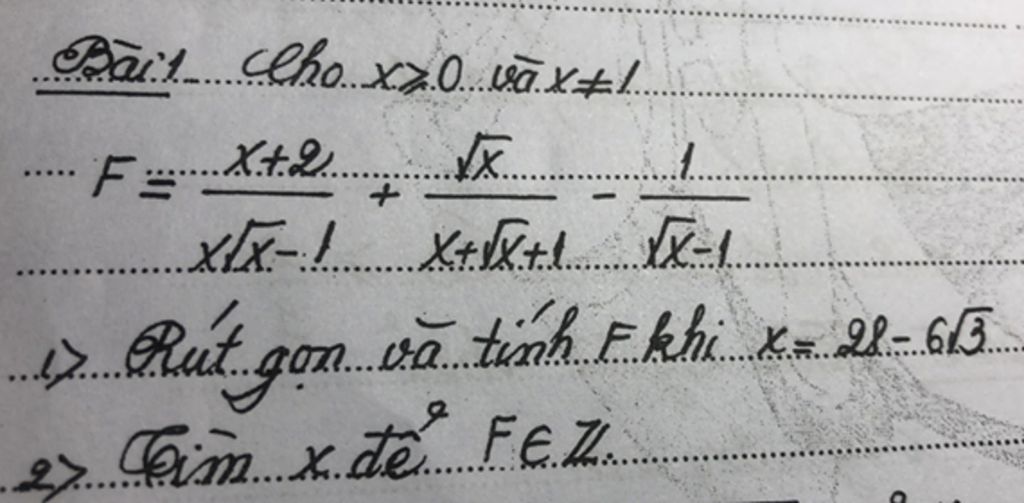 Bài 1 Cho x ≥ 0 và x ≠ 1
F = (x+2)/(x√x - 1) + √x/(x+√x+1) - 1/(√x-1)
1> Rút gọn và tính F khi x = 28 - 6√3
2> Tìm x để F ∈ Z.